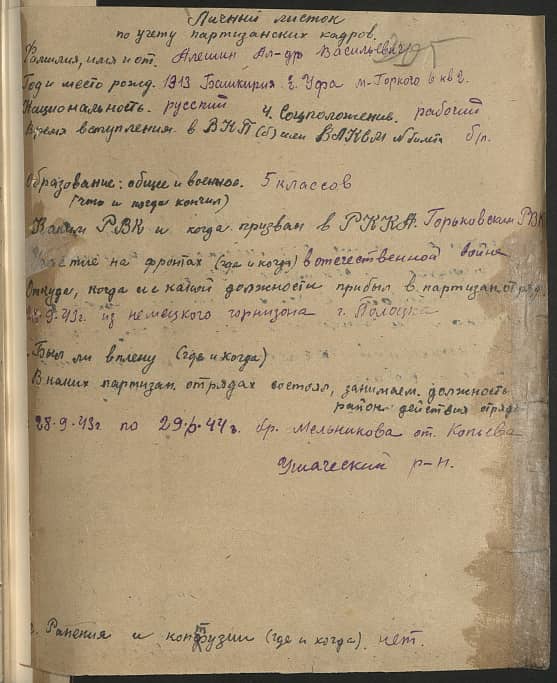 Личный листок
по учету партизанских кадров.
Фамилия, имя и от. Алешин Ал-др Васильевич
Год и место рожд. 1913 Башкирия г. Уфа м-Горкого 6 кв 2.
Национальность. русский 4. Соцположение. рабочий
Время вступления в ВКП(б) или ВЛКСМ № билета б/п.
Образование: общее и военное. 5 классов
(что и когда кончил)
Каким РВК и когда призван в РККА. Горьковским РВК
Участие на фронтах (где и когда) в отечественной войне
Откуда, когда и с какой должности прибыл в партизан. отряд.
28-9-43г. из немецкого горнизона г. Полоцка
Был ли в плену (где и когда)
В каких партизан. отрядах состоял, занимаем. должность
район действия отряда
28-9-43г по 29-6-44г. бр. Мельникова от. Копьева
Ушаческий р-н.
Ранения и контузии (где и когда). нет.